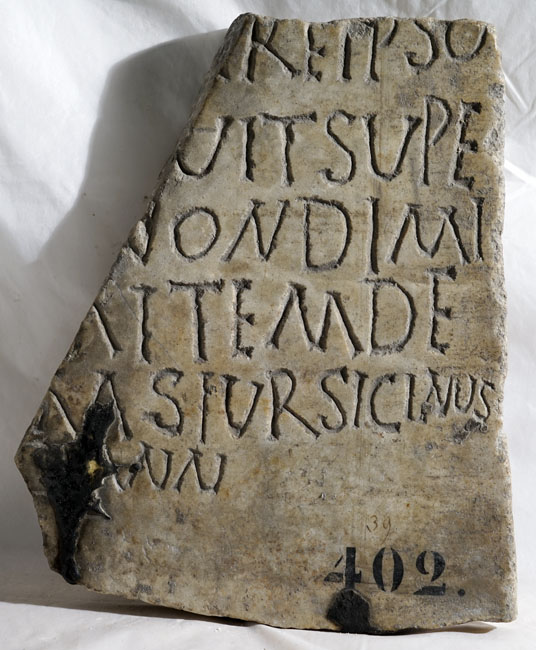 REIPSO
UITSUPE
NONDIMI
ITTEMDE
ASFURSICINUS
ANN
39
402.